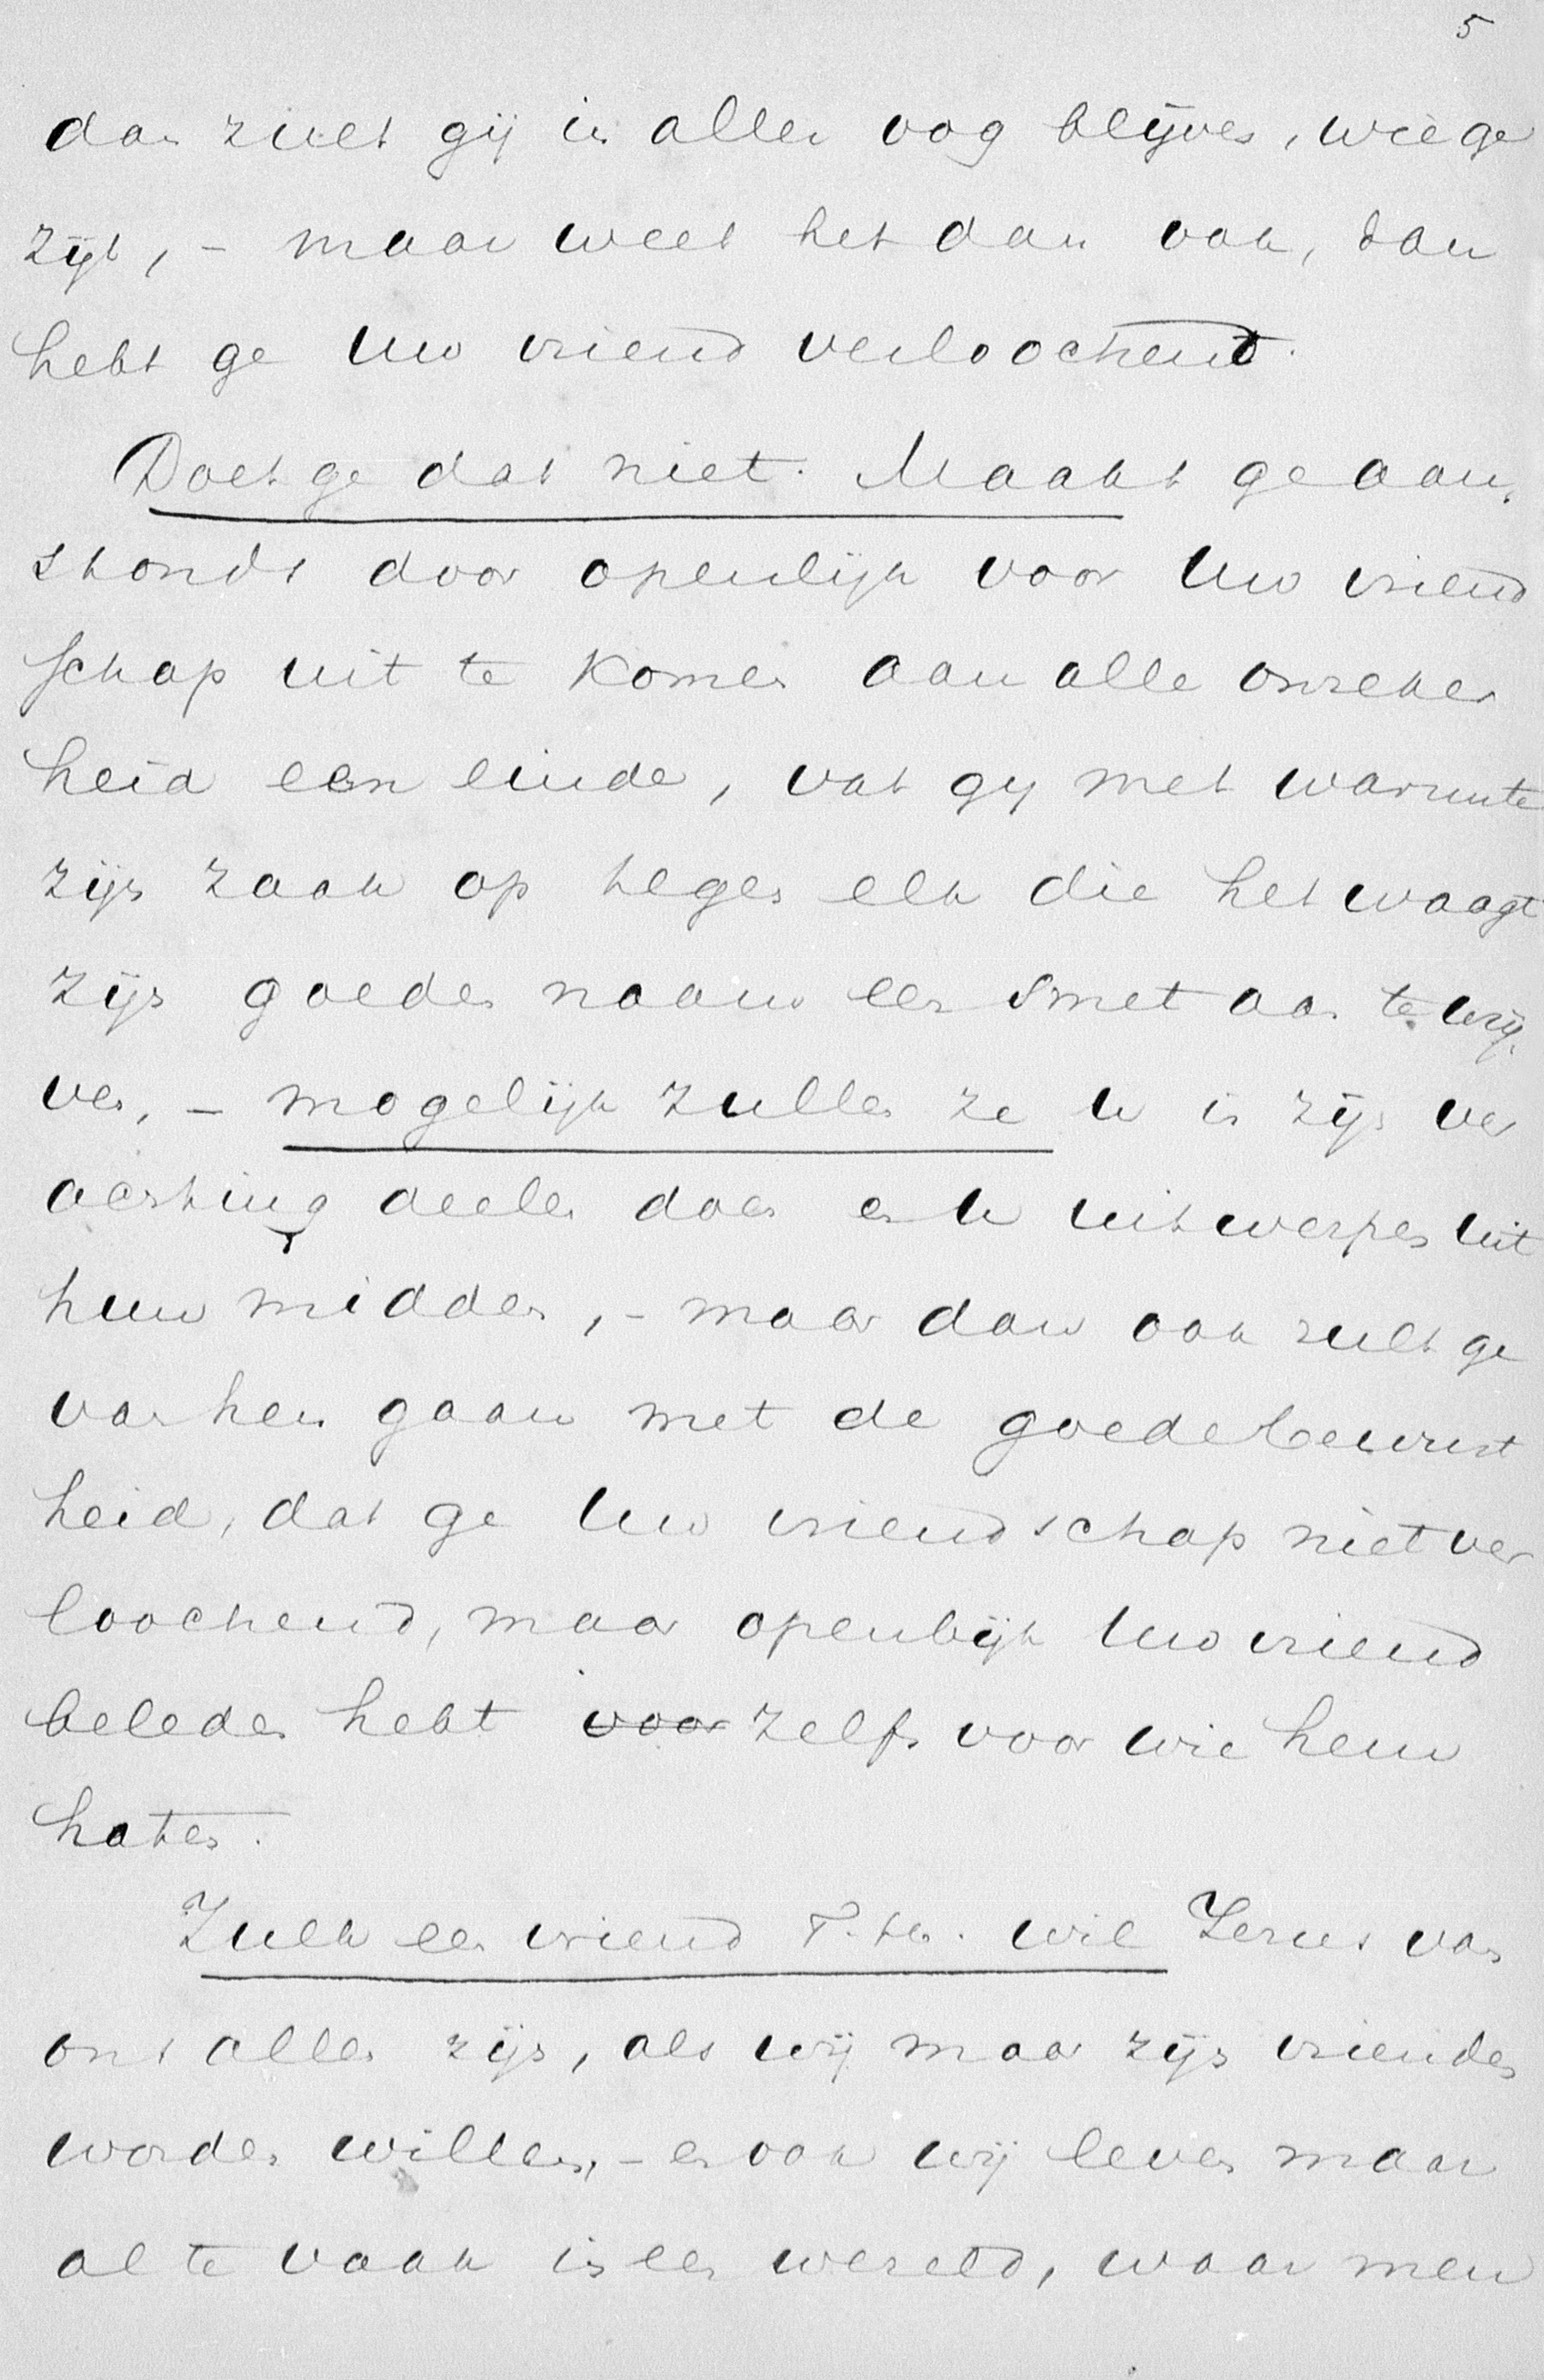 5
dan zult gij in aller oog blijven, wie ge
zijt, - maar weet het dan ook, dan
hebt ge Uw vriend verloochend.
Doet ge dat niet. Maakt ge aan-
stonds door openlijk voor Uw vriend
schap uit te komen aan alle onzeker
heid een einde, vat gij met warmte
zijn zaak op tegen elk die het waagt
zijn goeden naam een smet aan te wrij-
ven, - mogelijk zullen ze U in zijn ver
achting deelen doen en U uitwerpen uit
hun midden, - maar dan ook zult ge
van hen gaan met de goede bewust
heid, dat ge Uw vriendschap niet ver
loochend, maar openlijk Uw vriend
beleden hebt voor zelfs voor wie hem
haten.
Zulk een vriend T. h. wil Jezus van
ons allen zijn, als wij maar zijn vrienden
worden willen, - en ook wij leven maar
al te vaak in een wereld, waar men